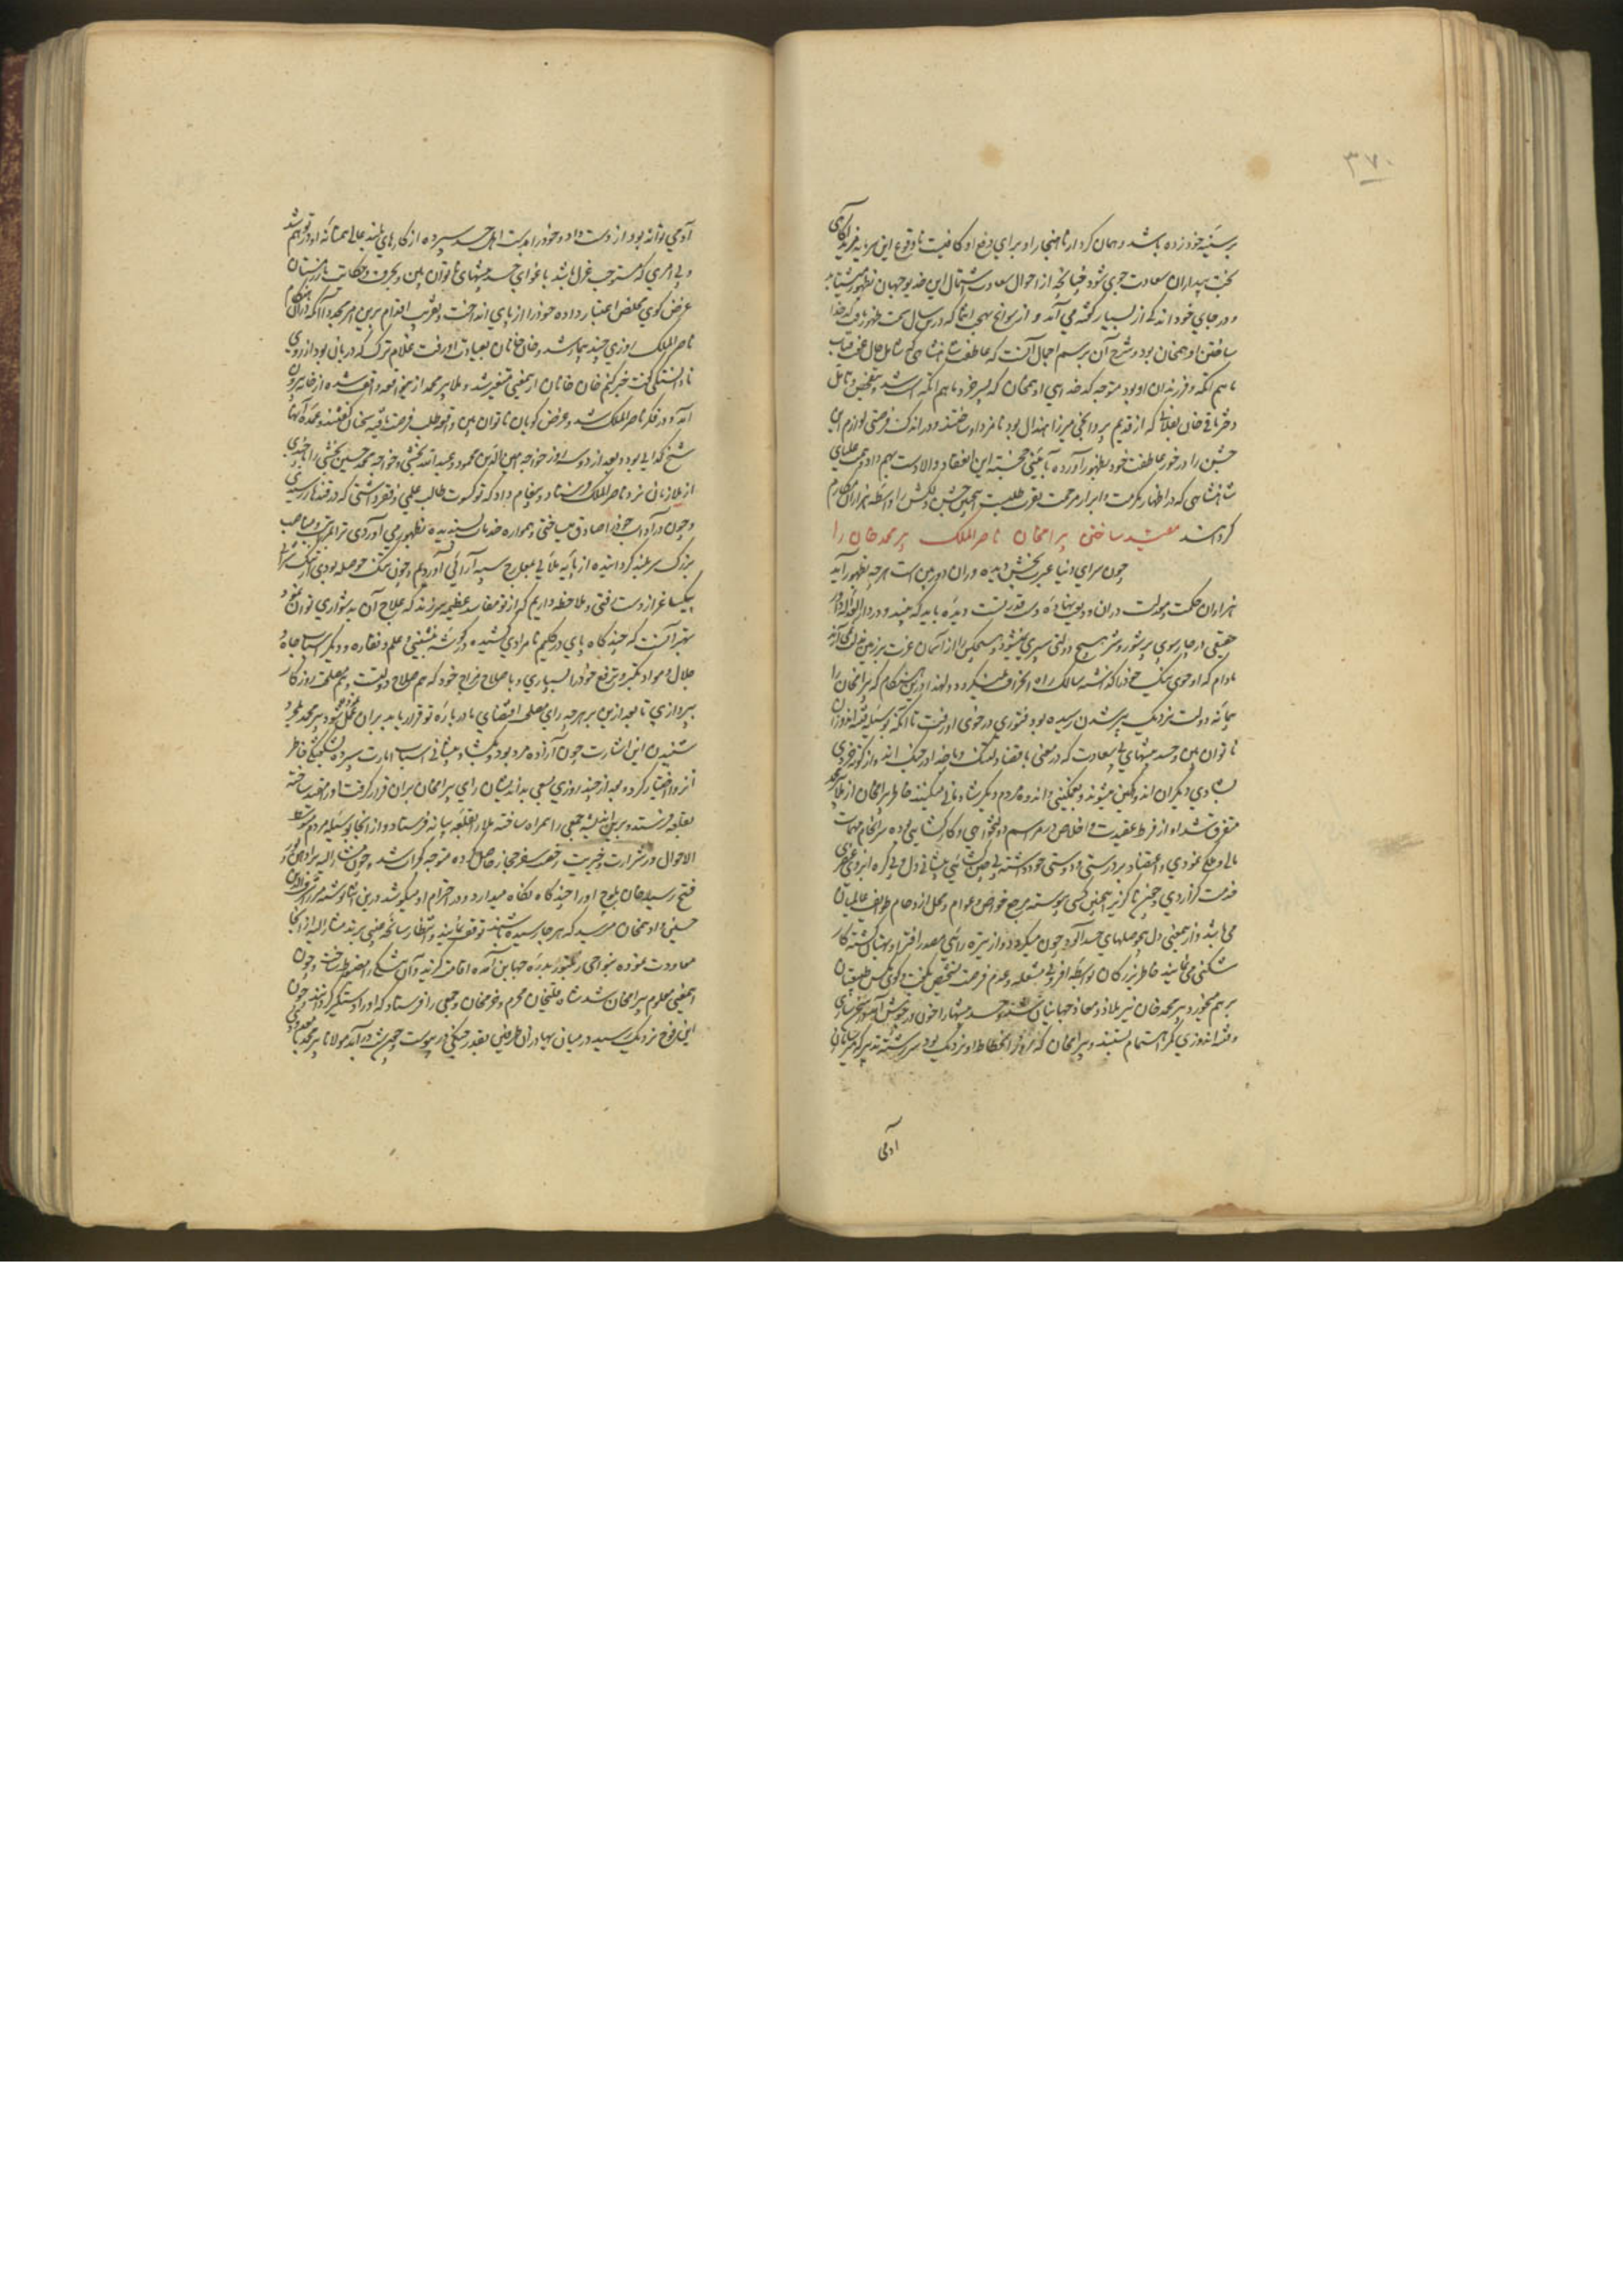 ۳۷۰
بر سینهٔ خود زده باشد و همان کردار ناهنجار او برای دفع او کافیست تا وقوع این سرمایه فزید آگاهی
بخت بیداران سعادت جوی شود چنانچه از احوال سعادت اشتمال این خدیو جهان بظهور
و در جای خود اندکی از بسیار گفته می آید و از سوانح بهجت انتما که درین سال سمت ظهور یافت کدخدا
ساختن ادهم خان بود و شرح آن برسم اجمال آنست که عاطفت شاهنشاهی که شامل حال عفت قباب
ماهم انکه و فرزندان او بود متوجه کدخدایی ادهم خان که پسر خرد ماهم انکه است شد و بتفحص و تامل
دختر باقی خان بقلانی که از قدیم میرزا هندال بود نامزد او ساختند و در اندک فرصتی لوازم این
جشن را در خور عاطفت خود بظهور آورده بآیینی خجسته این انعقاد والا دست بهم داد و همت علیای
شاهنشاهی که در اظهار مکرمت و ابراز مرحمت تقریب طلبست همچنین جشن دلکش را واسطه هزاران مکارم
گردانید مقید ساختن بیرامخان ناصرالملک پیر محمد خان را
چون سرای دنیا عبرت بخش دیده وران دوربین است هر چه بظهور آید
هزاران حکمت و مصلحت دران ودیعت نهاده دست قدرتست دیده باید که بیند و در دار
حقیقی در چار سوی پر شور و شر هیچ دولتی سپری نمیشود و هیچکس را از آسمان عزت بر زمین مذلت نمی
مادام که او خوی نیک خود را گذاشته سالک راه انحراف نمیگردد و لهذا درین هنگام که بیرامخان را
پیمانه دولت نزدیک پر شدن رسیده بود فتوری در خوی او رفت تا آنکه بوسیله فتنه اندوزان
ناتوان بین و حسد پیشهای بی سعادت که در معنی با قضا در جنگ و با خدا در جنگ اند و از کوته خردی
بشادی دیگران اندوهگین میشوند و بغمگینی و اندوه مردم دیگر شادمانی میکنند خاطر بیرامخان از ملا پیر محمد
متفرق شد او از فرط عقیدت و اخلاص در مراسم دولتخواهی و کارکشایی بوده سرانجام مهمات
مالی و ملکی نمودی و اعتضاد بر درستی و دوستی خود داشته بی چین پیشانی دل و بی گره ابروی
خدمت گزاردی و چون ناگزیر اینچنین کسی پیوسته مرجع خواص و عوام و محل ازدحام طوایف عالمیان
می باشد و از همین معنی دل بی حوصلهای حسد آلود خون میگردد و از تیره رائی مصدر افترا و بهتان گشته کار
شکنی می نمایند خاطر بزرگان بواسطه افزونی مشغله و عدم فرصت تشخیص بگفت و گوی ناقص طبیعتان
بر هم میخورد پیر محمد خان نیز ملاذ و معاذ جهانیان شد حسد پیشها را خون در جوش آمد و بسخن سازی
و فتنه اندوزی کمر اهتمام بستند و بیرامخان که روز انحطاط او نزدیک بود سررشته تدبیر
آدمی
آدمی توانند بود از دست داد و خود را بدست اهل حسد سپرده از کارهای بلند عالی همتانه او در توهم شد
و بی امری که مستوجب عزل باشد باغوای حسد پیشهای ناتوان بین و بحرف و حکایت
غرض گوی مخلص اعتبار داده خود را از پای انداخت و تقریب اقدام برین امر مجدد آنکه دران هنگام
ناصرالملک روزی چند بیمار شد و خان خانان بعیادت او رفت غلام ترک که دربان بود از روی
نادانستگی گفت خبر کنم خان خانان ازین معنی متغیر شد و ملا پیر محمد ازین واقعه واقف شده از خانه بیرون
آمد و در فکر ناصرالملک شد و غرض گویان ناتوان بین و قابو طلب فرصت یافته سخنان گفتند و عمده آنها
شیخ گدایی بود و بعد از دو سه روز خواجه امین الدین محمود و عبدالله بخشی و خواجه محمد حسین بخشی را با چندی
از ملازمان نزد ناصرالملک فرستاد و پیغام داد که تو کسوت طالب علمی و فقر داشتی که در قندهار رسیدی
و چون در آداب خود را صادق میساختی و همواره خدمات پسندیده بظهور می آوردی ترا بمراتب و مناصب
بزرگ سربلند گردانیده از پایه ملایی بمعارج سپه آرائی آوردیم و چون تنک حوصله بودی از تنک شرابی
بیک ساغر از دست رفتی و ملاحظه داریم که از تو مفاسد عظیمه سر زند که علاج آن بدشواری توان نمود
بهتر آنست که چندگاه پای در گلیم نامرادی کشیده در گوشه نشینی و علم و نقاره و دیگر اسباب جاه و
جلال و مواد تکبر و ترفع خود را بسپاری و باصلاح مزاج خود که هم صلاح دولتست و هم مصلحت روزگار
بپردازی تا بعد ازین بر هر چه رای مصلحت اقتضای ما در باره تو قرار یابد بران عمل شود پیر محمد
شنیدن این اشارت چون آزاده مرد بود بکشاده پیشانی اسباب امارت سپرده بشگفتگی خاطر
انزوا اختیار کرد و بعد از چند روزی بسعی بداندیشان رای بیرامخان بران قرار گرفت او را مقید ساخته
بقلعه فرستد و برین اندیشه جمعی را همراه ساخته ملا را بقلعه بیانه فرستاد و از آنجا بوسیله مردم
الاحوال در شرارت و خیریت رخصت سفر حجاز حاصل کرده متوجه گجرات شد و چون مشارالیه
فتح رسید خان بلوچ او را چند گاه نگاه میدارد و در احترام او میکوشد درین اثنا نوشته میرزا شرف الدین
حسین و ادهم خان میرسد که هر جا رسیده باشند توقف نمایند و انتظار سانحه غیبی برند مشارالیه از آنجا
معاودت نموده بنواحی رنتنبور بدره جهاین آمده اقامت گزید و آن را مضبوط ساخت و چون
این معنی معلوم بیرامخان شد شاه قلیخان محرم و خرم خان و جمعی را فرستاد که او را دستگیر گردانند چون
این فوج نزدیک رسید در میان بهادران طرفین بقدر جنگی در پیوست و چون شب درآمد مولانا پیر محمد با